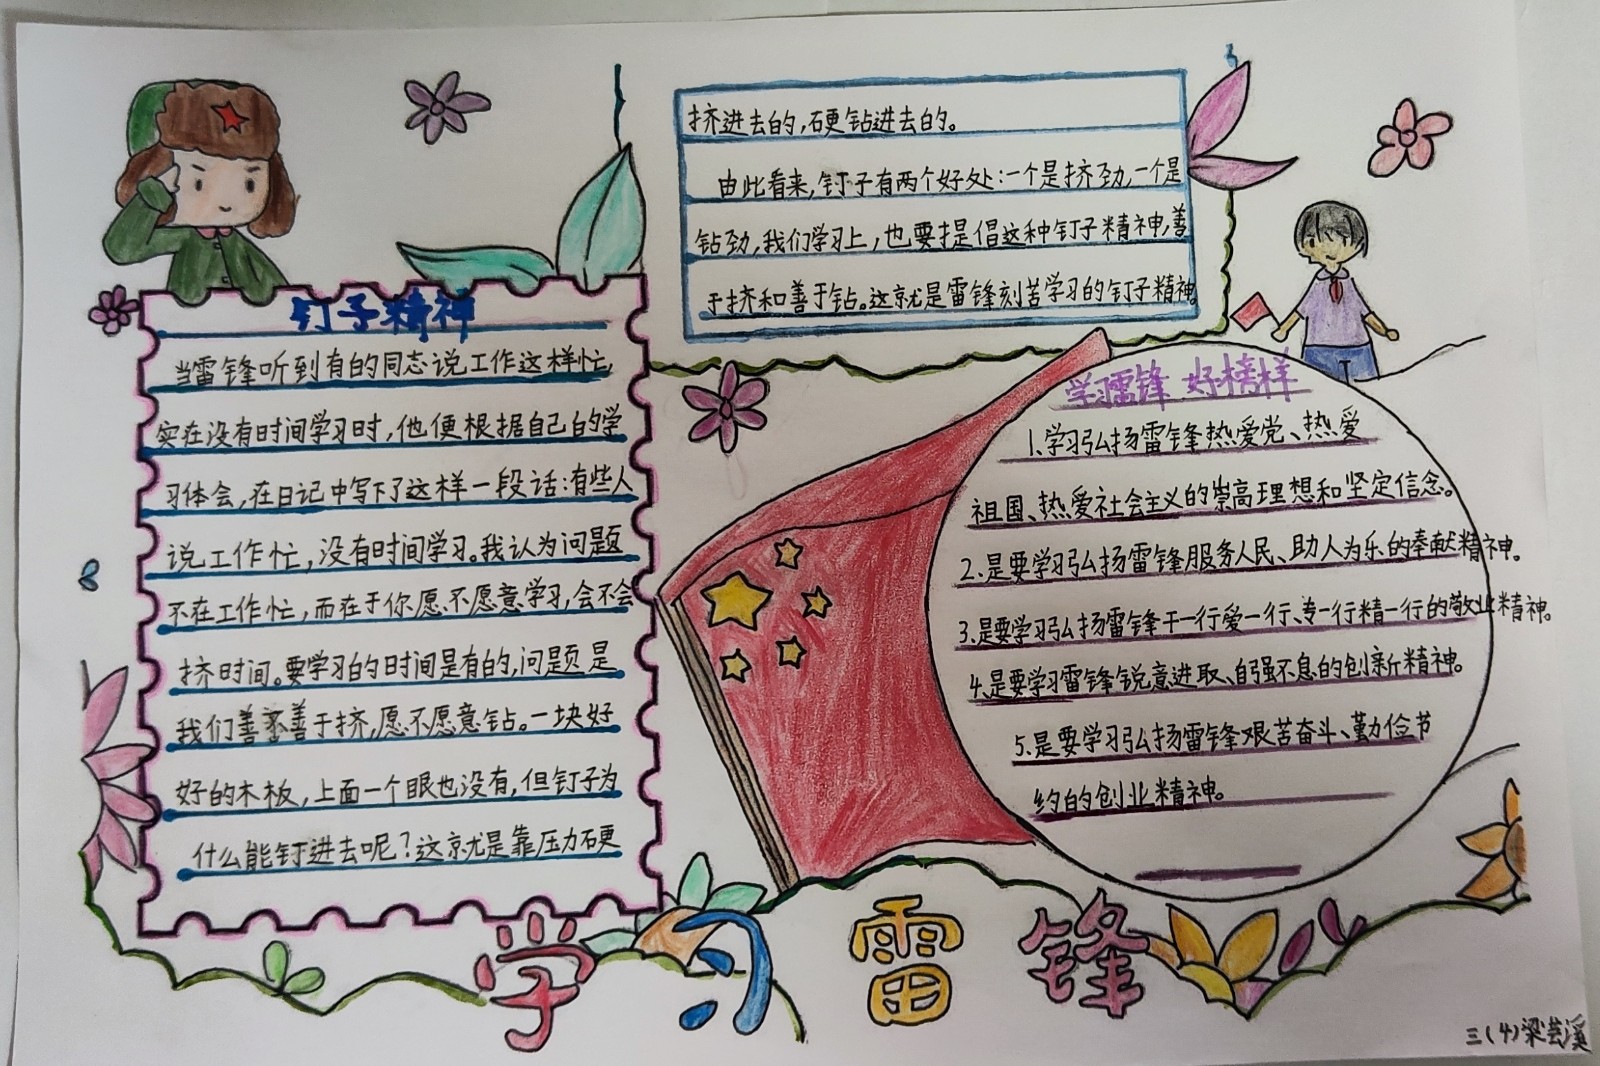 钉子精神
当雷锋听到有的同志说工作这样忙,
实在没有时间学习时,他便根据自己的学
习体会,在日记中写下了这样一段话:有些人
说工作忙,没有时间学习。我认为问题
不在工作忙,而在于你愿不愿意学习,会不会
挤时间。要学习的时间是有的,问题是
我们善不善于挤,愿不愿意钻。一块好
好的木板,上面一个眼也没有,但钉子为
什么能钉进去呢?这就是靠压力硬
挤进去的,硬钻进去的。
由此看来,钉子有两个好处:一个是挤劲,一个是
钻劲,我们学习上,也要提倡这种钉子精神,善
于挤和善于钻。这就是雷锋刻苦学习的钉子精神。
学习雷锋 好榜样
1.学习弘扬雷锋热爱党、热爱
祖国、热爱社会主义的崇高理想和坚定信念。
2.是要学习弘扬雷锋服务人民、助人为乐的奉献精神。
3.是要学习弘扬雷锋干一行爱一行、专一行精一行的敬业精神。
4.是要学习雷锋锐意进取、自强不息的创新精神。
5.是要学习弘扬雷锋艰苦奋斗、勤俭节
约的创业精神。
学习雷锋
三(4)梁芸溪